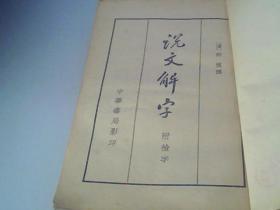 [漢]許慎撰
説文解字
附檢字
中華書局影印